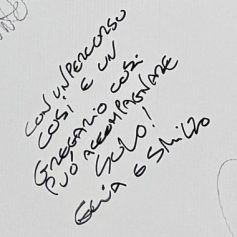 CON UN PERCORSO
COSÌ E UN
GREGARIO COSÌ
PUÒ ACCOMPAGNARE
SOLO!